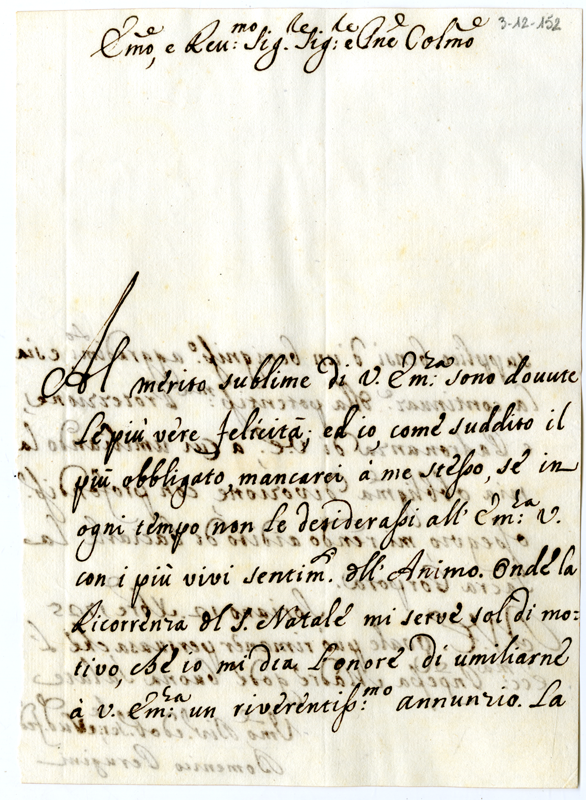 3-12-152
Emo, e Reu:mo Sig.re Sig:re e Pne Colmo
Al merito sublime di V. Em:za sono douute
le più vere felicità; ed io, come suddito il
più obbligato, mancarei à me stesso, se in
ogni tempo non le desiderassi all' Em:za V.
con i più vivi sentim.ti dell' Animo. Onde la
Ricorrenza del S. Natale mi serve sol di mo-
tivo, che io mi dia l'onore di umiliarne
à V. Em:za un riverentiss:mo annunzio. La